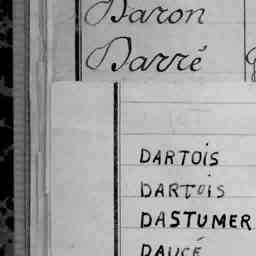 Baron
Barré
DARTOIS
DARTOIS
DASTUMER
DAUCÉ